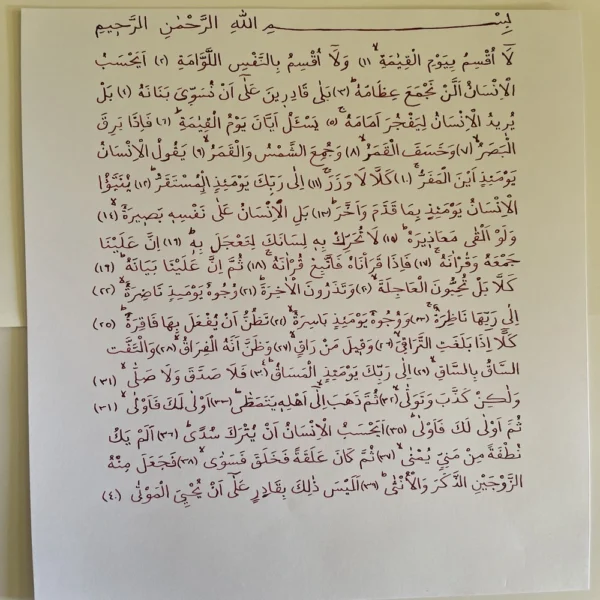 بِسْمِ اللّٰهِ الرَّحْمٰنِ الرَّحِيمِ
لَٓا اُقْسِمُ بِيَوْمِ الْقِيٰمَةِۙ (١) وَلَٓا اُقْسِمُ بِالنَّفْسِ اللَّوَّامَةِ (٢) اَيَحْسَبُ
الْاِنْسَانُ اَلَّنْ نَجْمَعَ عِظَامَهُۜ (٣) بَلٰى قَادِرِينَ عَلٰٓى اَنْ نُسَوِّىَ بَنَانَهُ (٤) بَلْ
يُرِيدُ الْاِنْسَانُ لِيَفْجُرَ اَمَامَهُۚ (٥) يَسْـَٔلُ اَيَّانَ يَوْمُ الْقِيٰمَةِۜ (٦) فَاِذَا بَرِقَ
الْبَصَرُۙ (٧) وَخَسَفَ الْقَمَرُۙ (٨) وَجُمِعَ الشَّمْسُ وَالْقَمَرُۙ (٩) يَقُولُ الْاِنْسَانُ
يَوْمَئِذٍ اَيْنَ الْمَفَرُّۚ (١٠) كَلَّا لَا وَزَرَۜ (١١) اِلٰى رَبِّكَ يَوْمَئِذٍ الْمُسْتَقَرُّۜ (١٢) يُنَبَّؤُا
الْاِنْسَانُ يَوْمَئِذٍ بِمَا قَدَّمَ وَاَخَّرَۜ (١٣) بَلِ الْاِنْسَانُ عَلٰى نَفْسِهِ بَصِيرَةٌۙ (١٤)
وَلَوْ اَلْقٰى مَعَاذِيرَهُۜ (١٥) لَا تُحَرِّكْ بِهِ لِسَانَكَ لِتَعْجَلَ بِهِۜ (١٦) اِنَّ عَلَيْنَا
جَمْعَهُ وَقُرْاٰنَهُۚ (١٧) فَاِذَا قَرَاْنَاهُ فَاتَّبِعْ قُرْاٰنَهُۚ (١٨) ثُمَّ اِنَّ عَلَيْنَا بَيَانَهُۜ (١٩)
كَلَّا بَلْ تُحِبُّونَ الْعَاجِلَةَۙ (٢٠) وَتَذَرُونَ الْاٰخِرَةَۜ (٢١) وُجُوهٌ يَوْمَئِذٍ نَاضِرَةٌۙ (٢٢)
اِلٰى رَبِّهَا نَاظِرَةٌۚ (٢٣) وَوُجُوهٌ يَوْمَئِذٍ بَاسِرَةٌۙ (٢٤) تَظُنُّ اَنْ يُفْعَلَ بِهَا فَاقِرَةٌۜ (٢٥)
كَلَّٓا اِذَا بَلَغَتِ التَّرَاقِىَۙ (٢٦) وَقِيلَ مَنْ رَاقٍۙ (٢٧) وَظَنَّ اَنَّهُ الْفِرَاقُۙ (٢٨) وَالْتَفَّتِ
السَّاقُ بِالسَّاقِۙ (٢٩) اِلٰى رَبِّكَ يَوْمَئِذٍ الْمَسَاقُۜ (٣٠) فَلَا صَدَّقَ وَلَا صَلّٰىۙ (٣١)
وَلٰكِنْ كَذَّبَ وَتَوَلّٰىۙ (٣٢) ثُمَّ ذَهَبَ اِلٰٓى اَهْلِهِ يَتَمَطّٰىۜ (٣٣) اَوْلٰى لَكَ فَاَوْلٰىۙ (٣٤)
ثُمَّ اَوْلٰى لَكَ فَاَوْلٰىۜ (٣٥) اَيَحْسَبُ الْاِنْسَانُ اَنْ يُتْرَكَ سُدًىۜ (٣٦) اَلَمْ يَكُ
نُطْفَةً مِنْ مَنِىٍّ يُمْنٰىۙ (٣٧) ثُمَّ كَانَ عَلَقَةً فَخَلَقَ فَسَوّٰىۙ (٣٨) فَجَعَلَ مِنْهُ
الزَّوْجَيْنِ الذَّكَرَ وَالْاُنْثٰىۜ (٣٩) اَلَيْسَ ذٰلِكَ بِقَادِرٍ عَلٰٓى اَنْ يُحْيِىَ الْمَوْتٰى (٤٠)